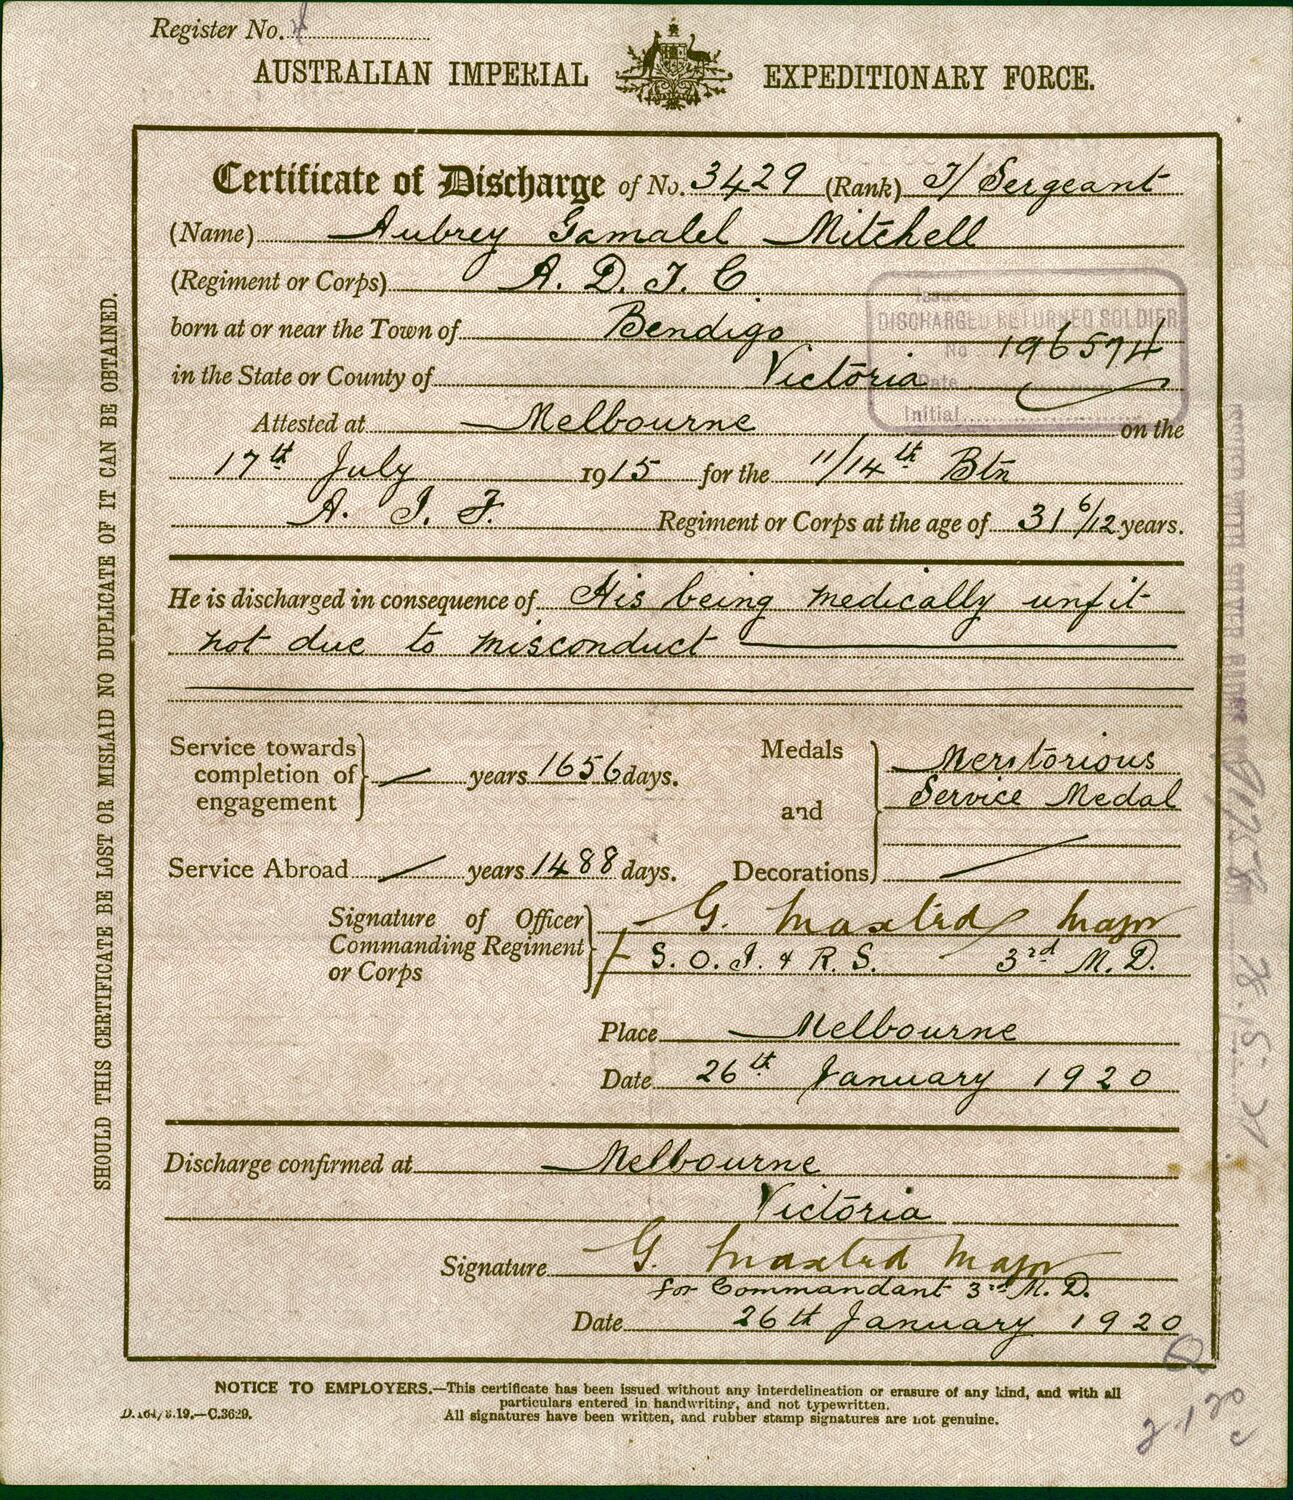 Register No.
AUSTRALIAN IMPERIAL EXPEDITIONARY FORCE.
Certificate of Discharge of No. 3429 (Rank) T/Sergeant
(Name) Aubrey Gamalel Mitchell
(Regiment or Corps) A. D. T. C.
Issued
DISCHARGED RETURNED SOLDIER
born at or near the Town of Bendigo
No 196574
in the State or County of Victoria
Date
Initial
Attested at Melbourne on the
17th July 1915 for the 11/14th Btn
A. I. F. Regiment or Corps at the age of 31 6/12 years.
He is discharged in consequence of His being medically unfit
not due to misconduct
Service towards completion of engagement — years 1656 days.
Medals and Decorations Meritorious
Service Medal
Service Abroad — years 1488 days.
Signature of Officer Commanding Regiment or Corps G. Maxted Major
S. O. I. & R. S. 3rd M. D.
Place Melbourne
Date 26th January 1920
Discharge confirmed at Melbourne
Victoria
Signature G. Maxted Major
for Commandant 3rd M. D.
Date 26th January 1920
NOTICE TO EMPLOYERS.—This certificate has been issued without any interdelineation or erasure of any kind, and with all
particulars entered in handwriting, and not typewritten.
D.164/8.19.—C.3629. All signatures have been written, and rubber stamp signatures are not genuine.
SHOULD THIS CERTIFICATE BE LOST OR MISLAID NO DUPLICATE OF IT CAN BE OBTAINED.